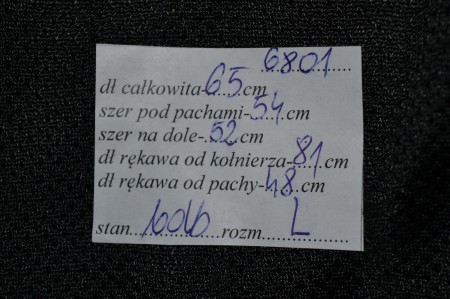 6801
dł całkowita-65cm
szer pod pachami-54cm
szer na dole-52cm
dł rękawa od kołnierza-81cm
dł rękawa od pachy-48cm
stan rozm L